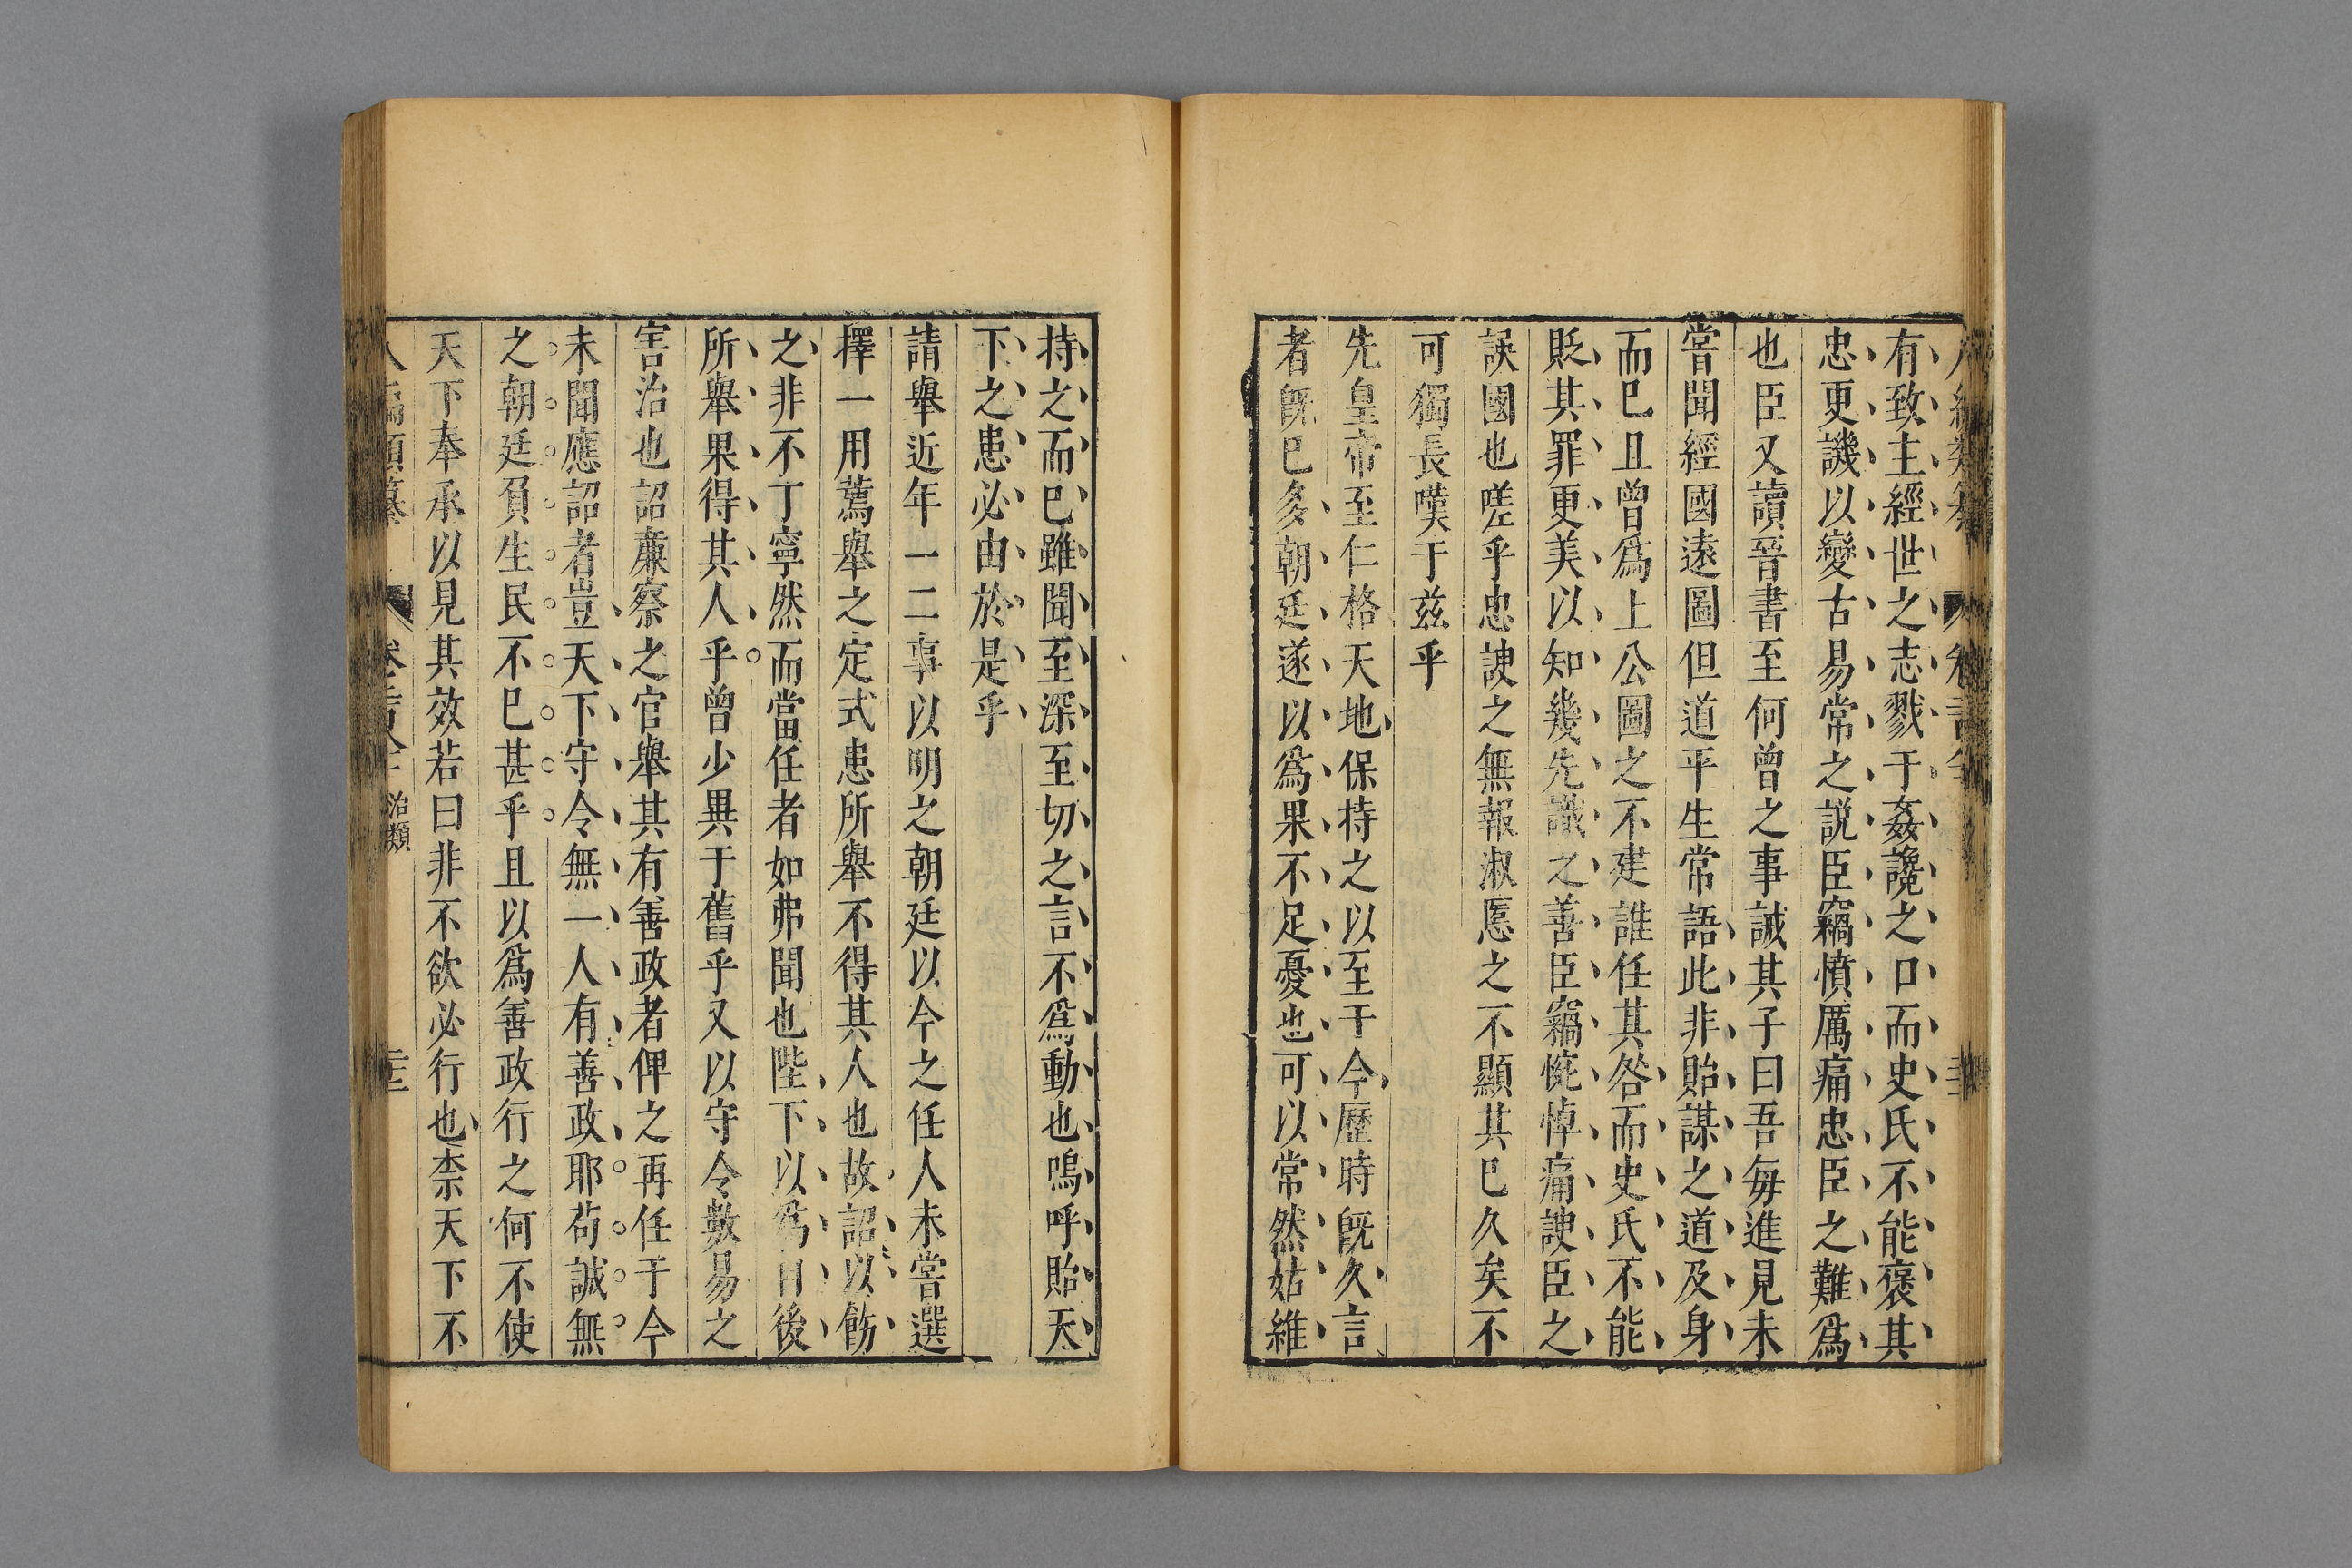 有致主經世之志戮于姦讒之口而史氏不能褒其
忠更譏以變古易常之説臣竊憤厲痛忠臣之難爲
也臣又讀晉書至何曾之事誠其子曰吾每進見未
嘗聞經國遠圖但道平生常語此非貽謀之道及身
而已且曾爲上公圖之不建誰任其咎而史氏不能
貶其罪更美以知幾先識之善臣竊惋悼痛諛臣之
誤國也嗟乎忠諛之無報淑慝之不顯其已久矣不
可獨長嘆于兹乎
先皇帝至仁格天地保持之以至于今歷時旣久言
者旣已多朝廷遂以爲果不足憂也可以常然姑維
持之而已雖聞至深至切之言不爲動也嗚呼貽天
下之患必由於是乎
請舉近年一二事以明之朝廷以今之任人未嘗選
擇一用薦舉之定式患所舉不得其人也故詔以飭
之非不丁寧然而當任者如弗聞也陛下以爲自後
所舉果得其人乎曾少異于舊乎又以守令數易之
害治也詔廉察之官舉其有善政者俾之再任于今
未聞應詔者豈天下守令無一人有善政耶苟誠無
之朝廷負生民不已甚乎且以爲善政行之何不使
天下奉承以見其效若曰非不欲必行也柰天下不
八編類纂 治類